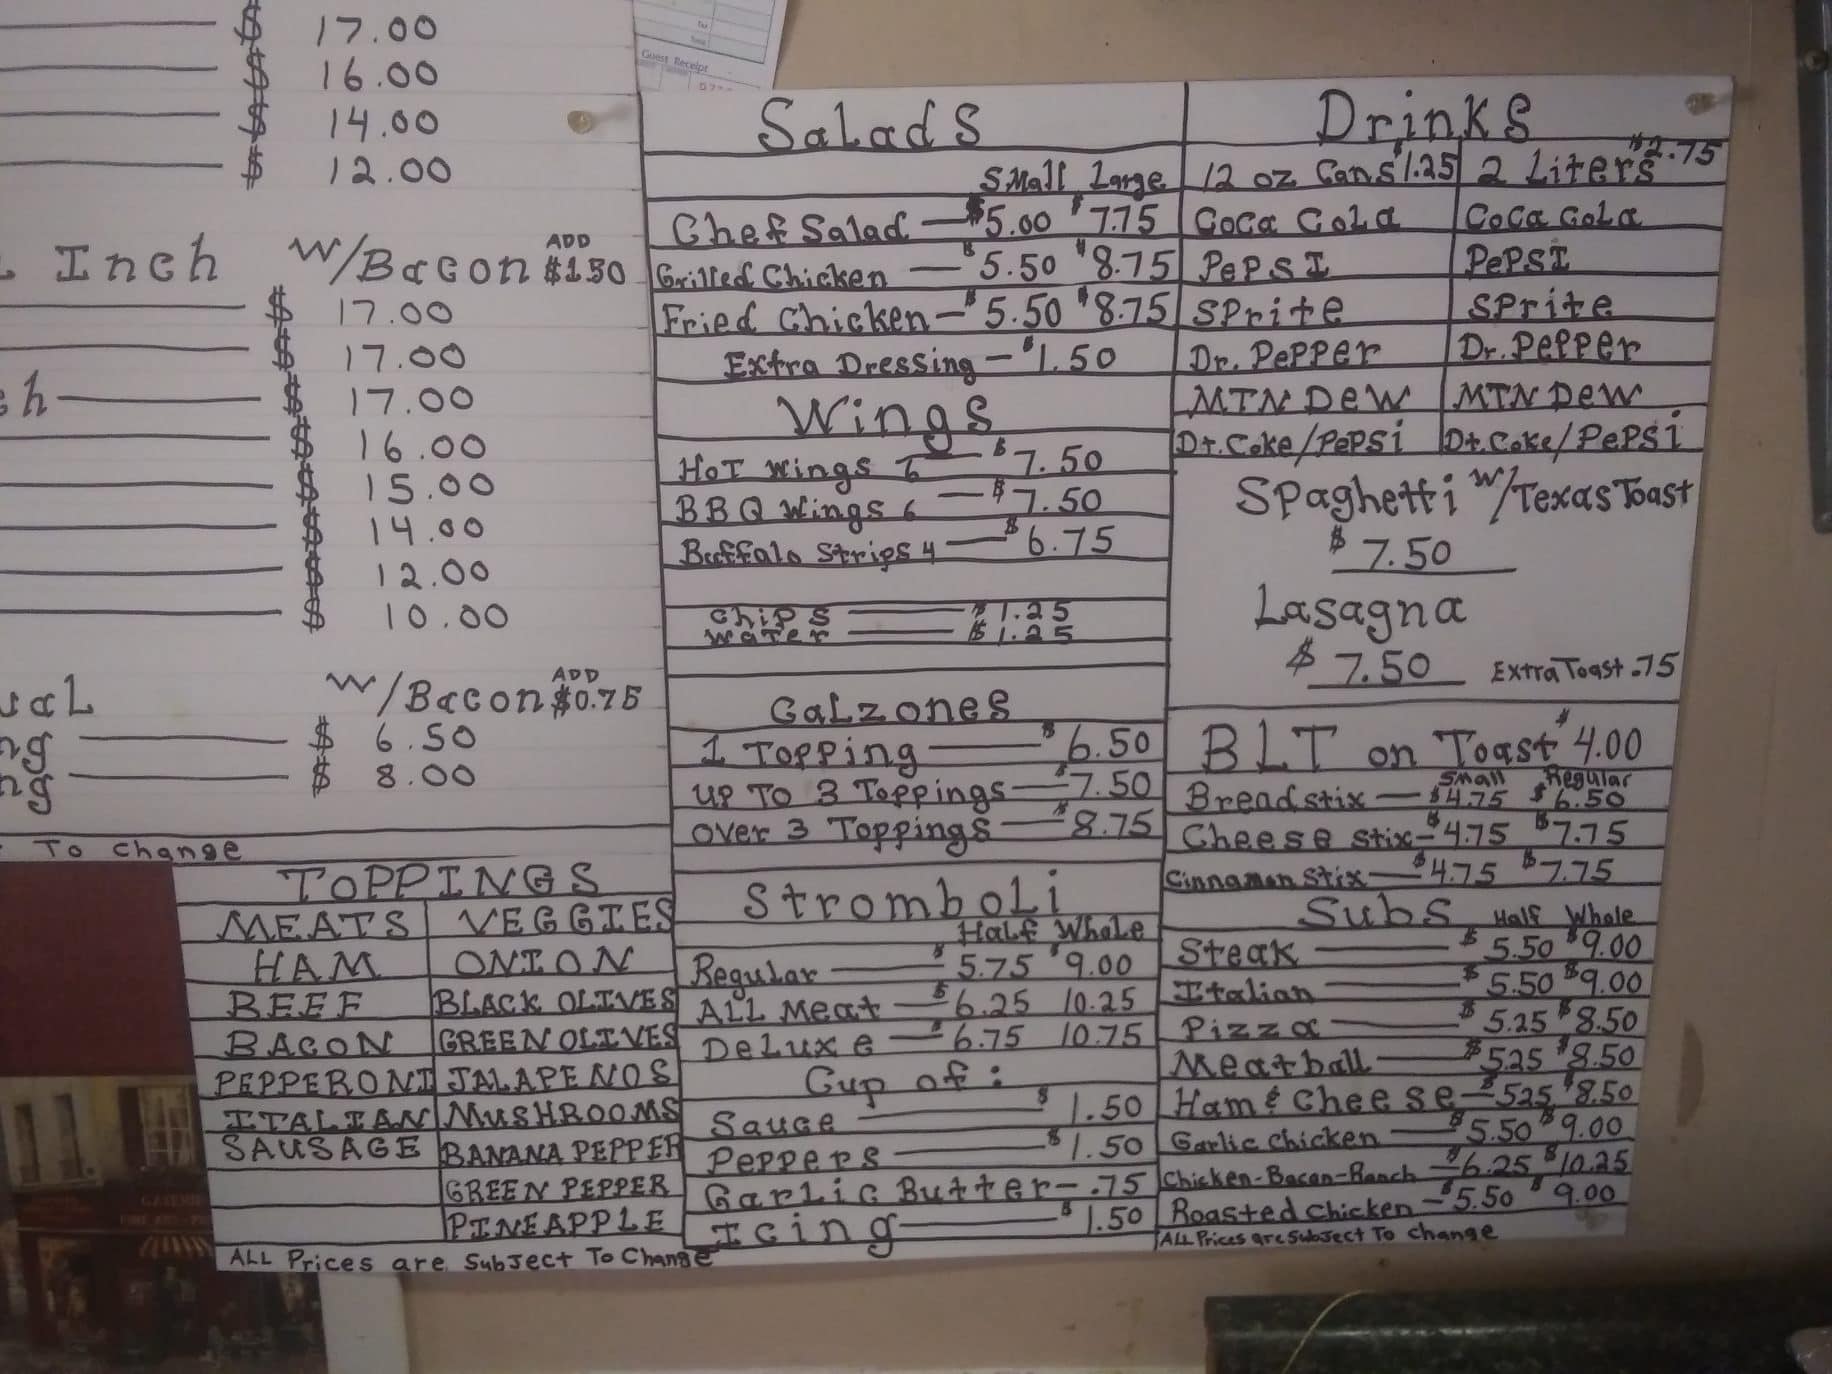 $ 17.00
$ 16.00
$ 14.00
$ 12.00
Inch W/Bacon ADD $1.50
$ 17.00
$ 17.00
$ 17.00
$ 16.00
$ 15.00
$ 14.00
$ 12.00
$ 10.00
W/Bacon ADD $0.75
$ 6.50
$ 8.00
To Change
TOPPINGS
MEATS VEGGIES
HAM ONION
BEEF BLACK OLIVES
BACON GREEN OLIVES
PEPPERONI JALAPENOS
ITALIAN MUSHROOMS
SAUSAGE BANANA PEPPER
GREEN PEPPER
PINEAPPLE
ALL Prices are Subject To Change
Guest Receipt
Salads
Small Large
Chef Salad — $5.00 $7.75
Grilled Chicken — $5.50 $8.75
Fried Chicken — $5.50 $8.75
Extra Dressing — $1.50
Wings
Hot Wings 6 — $7.50
BBQ Wings 6 — $7.50
Buffalo Strips 4 — $6.75
Chips — $1.25
Water — $1.25
Calzones
1 Topping — $6.50
up To 3 Toppings — $7.50
over 3 Toppings — $8.75
Stromboli
Half Whole
Regular — $5.75 $9.00
ALL Meat — $6.25 10.25
Deluxe — $6.75 10.75
Cup of:
Sauce — $1.50
Peppers — $1.50
Garlic Butter — .75
Icing — $1.50
Drinks
12 oz Cans $1.25 2 Liters $2.75
Coca Cola Coca Cola
Pepsi Pepsi
Sprite Sprite
Dr. Pepper Dr. Pepper
MTN Dew MTN Dew
Dt. Coke/Pepsi Dt. Coke/Pepsi
Spaghetti w/Texas Toast
$ 7.50
Lasagna
$ 7.50 Extra Toast .75
BLT on Toast $4.00
Small Regular
Breadstix — $4.75 $6.50
Cheese stix — $4.75 $7.75
Cinnamon Stix — $4.75 $7.75
Subs Half Whole
Steak — $5.50 $9.00
Italian — $5.50 $9.00
Pizza — $5.25 $8.50
Meatball — $5.25 $8.50
Ham & Cheese — $5.25 $8.50
Garlic Chicken — $5.50 $9.00
Chicken-Bacon-Ranch — $6.25 $10.25
Roasted Chicken — $5.50 $9.00
ALL Prices are Subject To Change